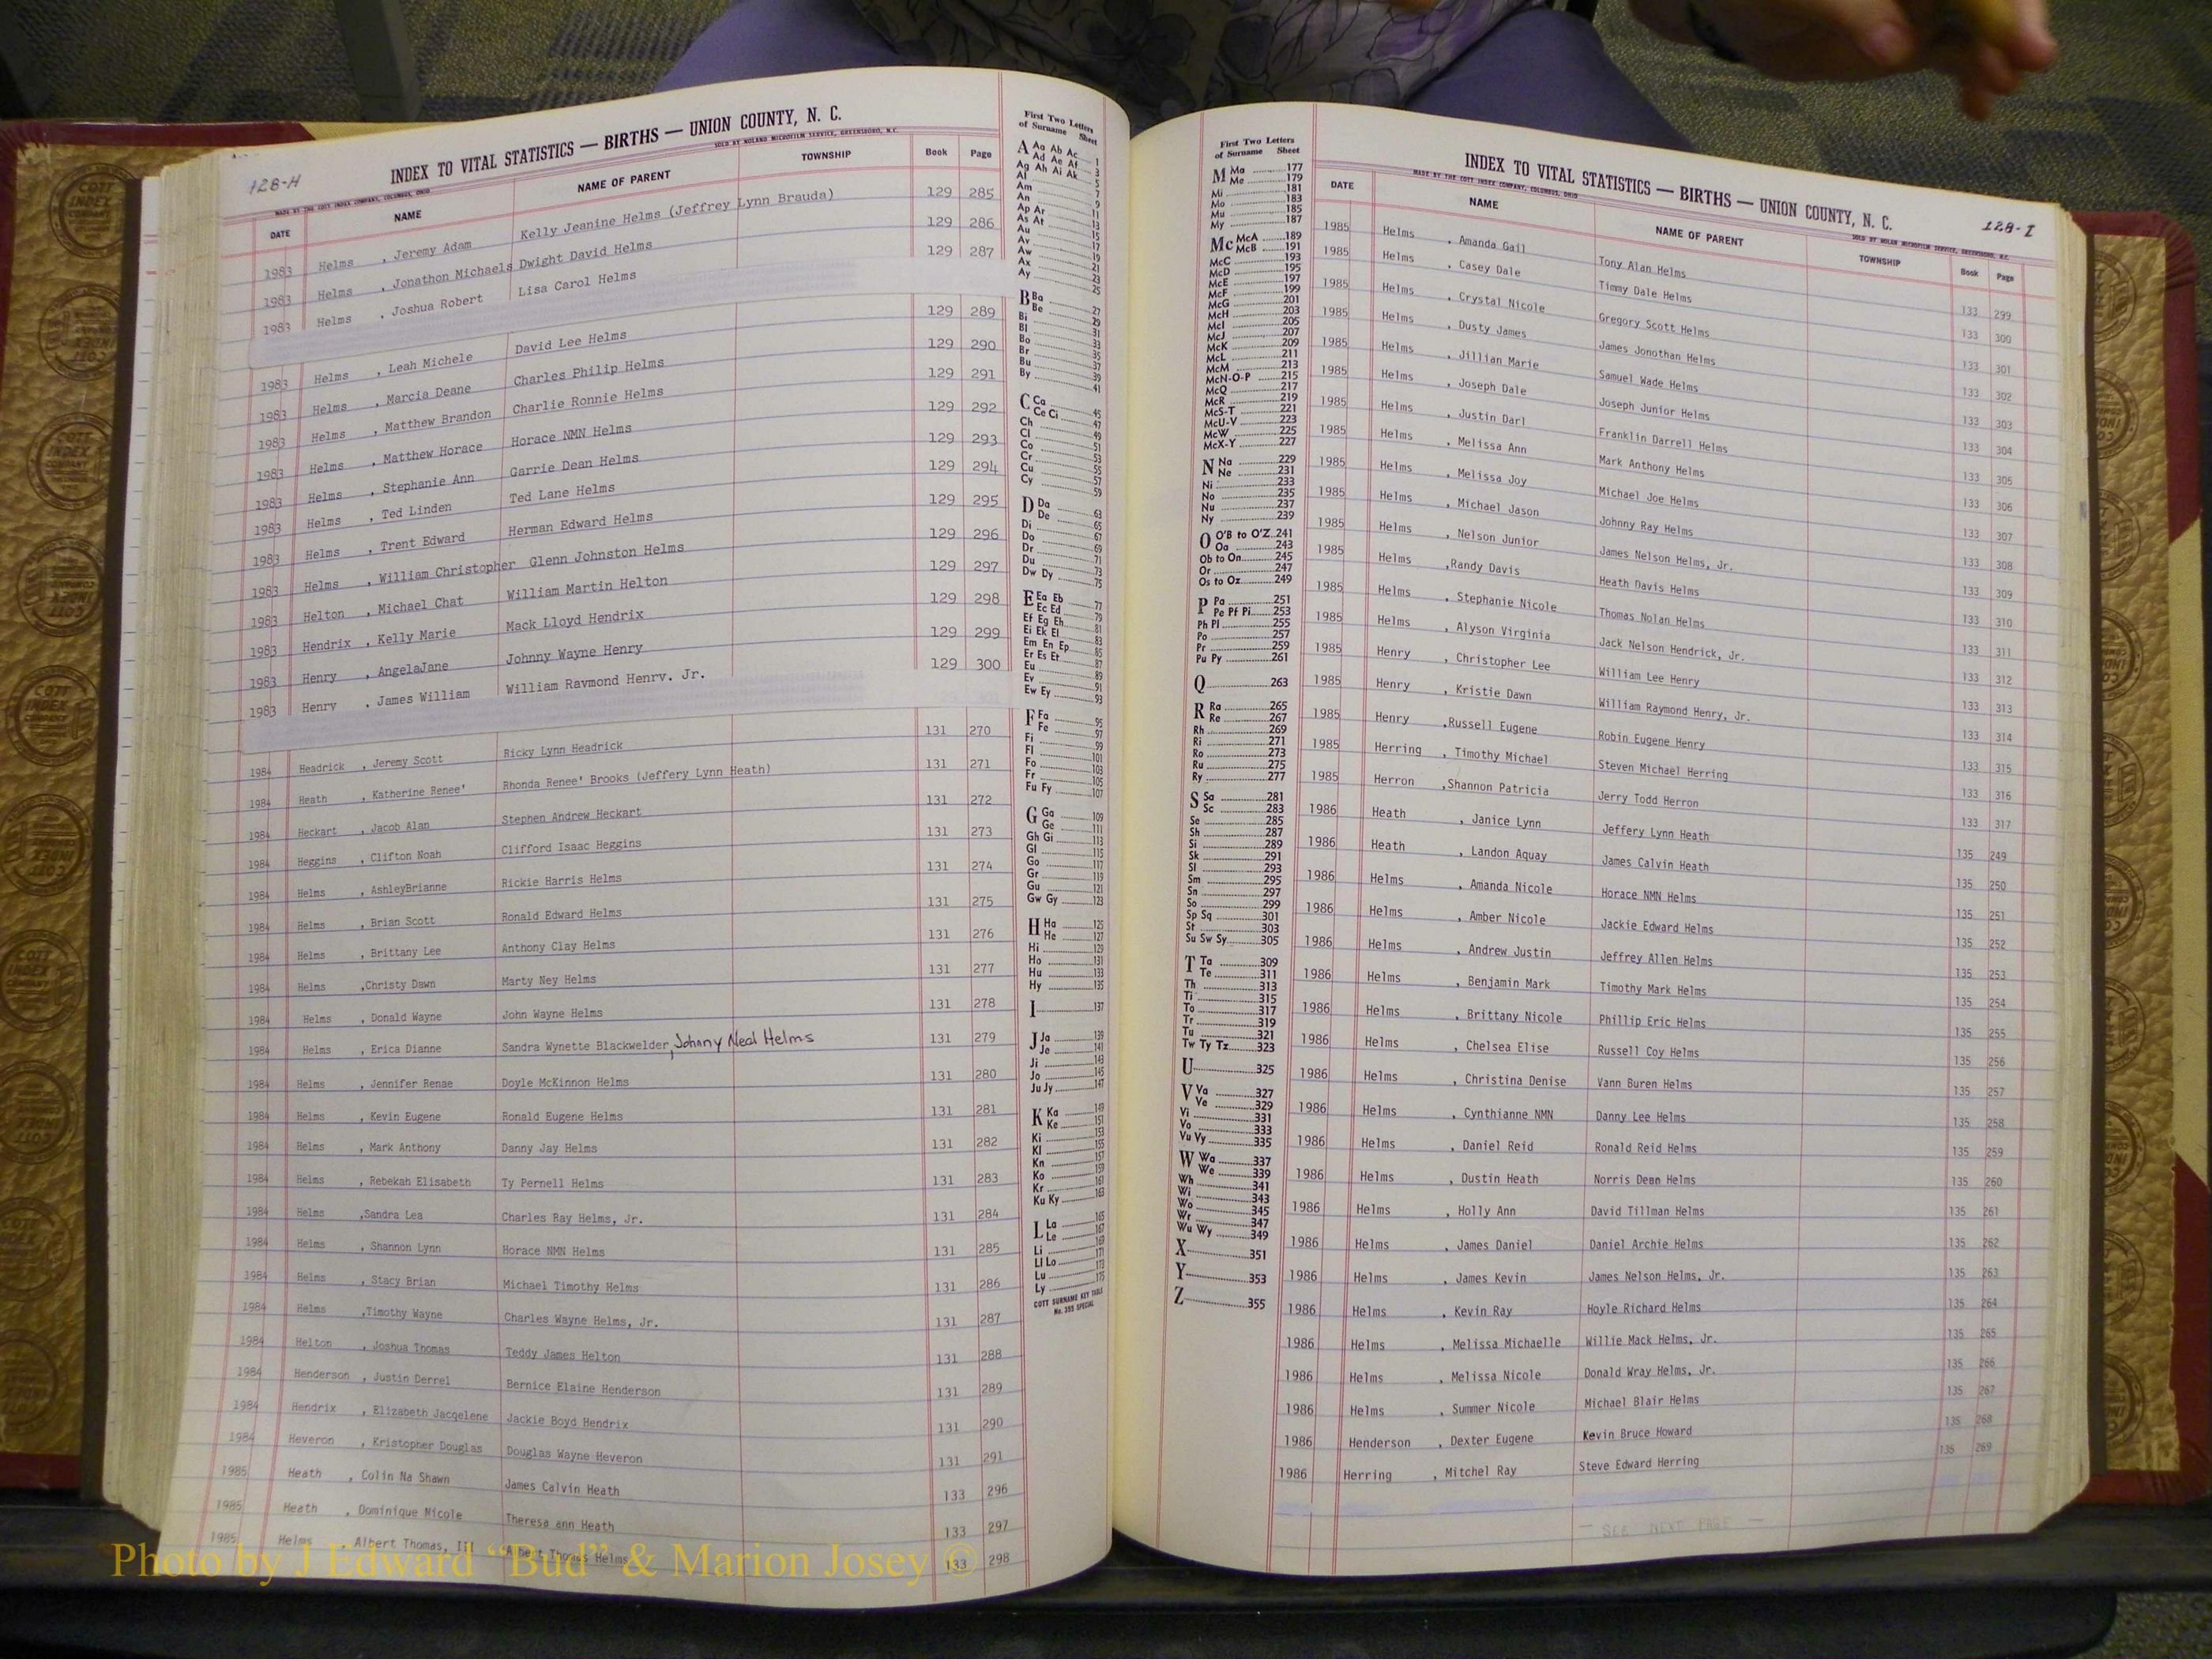 128-H
INDEX TO VITAL STATISTICS — BIRTHS — UNION COUNTY, N. C.
MADE BY THE COTT INDEX COMPANY, COLUMBUS, OHIO SOLD BY NOLAND MICROFILM SERVICE, GREENSBORO, N.C.
DATE NAME NAME OF PARENT TOWNSHIP Book Page
1983 Helms , Jeremy Adam Kelly Jeanine Helms (Jeffrey Lynn Brauda) 129 285
1983 Helms , Jonathon Michaels Dwight David Helms 129 286
1983 Helms , Joshua Robert Lisa Carol Helms 129 287
1983 Helms , Leah Michele David Lee Helms 129 289
1983 Helms , Marcia Deane Charles Philip Helms 129 290
1983 Helms , Matthew Brandon Charlie Ronnie Helms 129 291
1983 Helms , Matthew Horace Horace NMN Helms 129 292
1983 Helms , Stephanie Ann Garrie Dean Helms 129 293
1983 Helms , Ted Linden Ted Lane Helms 129 294
1983 Helms , Trent Edward Herman Edward Helms 129 295
1983 Helms , William Christopher Glenn Johnston Helms 129 296
1983 Helton , Michael Chat William Martin Helton 129 297
1983 Hendrix , Kelly Marie Mack Lloyd Hendrix 129 298
1983 Henry , AngelaJane Johnny Wayne Henry 129 299
1983 Henry , James William William Raymond Henry, Jr. 129 300
1984 Headrick , Jeremy Scott Ricky Lynn Headrick 131 270
1984 Heath , Katherine Renee' Rhonda Renee' Brooks (Jeffery Lynn Heath) 131 271
1984 Heckart , Jacob Alan Stephen Andrew Heckart 131 272
1984 Heggins , Clifton Noah Clifford Isaac Heggins 131 273
1984 Helms , AshleyBrianne Rickie Harris Helms 131 274
1984 Helms , Brian Scott Ronald Edward Helms 131 275
1984 Helms , Brittany Lee Anthony Clay Helms 131 276
1984 Helms ,Christy Dawn Marty Ney Helms 131 277
1984 Helms , Donald Wayne John Wayne Helms 131 278
1984 Helms , Erica Dianne Sandra Wynette Blackwelder, Johnny Neal Helms 131 279
1984 Helms , Jennifer Renae Doyle McKinnon Helms 131 280
1984 Helms , Kevin Eugene Ronald Eugene Helms 131 281
1984 Helms , Mark Anthony Danny Jay Helms 131 282
1984 Helms , Rebekah Elisabeth Ty Pernell Helms 131 283
1984 Helms ,Sandra Lea Charles Ray Helms, Jr. 131 284
1984 Helms , Shannon Lynn Horace NMN Helms 131 285
1984 Helms , Stacy Brian Michael Timothy Helms 131 286
1984 Helms ,Timothy Wayne Charles Wayne Helms, Jr. 131 287
1984 Helton , Joshua Thomas Teddy James Helton 131 288
1984 Henderson , Justin Derrel Bernice Elaine Henderson 131 289
1984 Hendrix , Elizabeth Jacqelene Jackie Boyd Hendrix 131 290
1984 Heveron , Kristopher Douglas Douglas Wayne Heveron 131 291
1985 Heath , Colin Na Shawn James Calvin Heath 133 296
1985 Heath , Dominique Nicole Theresa ann Heath 133 297
1985 Helms , Albert Thomas, II Albert Thomas Helms 133 298
First Two Letters
of Surname Sheet
A Aa Ab Ac 1
Ad Ae Af 3
Ag Ah Ai Ak 5
Al 7
Am 9
An 11
Ap Ar 13
As At 15
Au 17
Av 19
Aw 21
Ax 23
Ay 25
B Ba 27
Be 29
Bi 31
Bl 33
Bo 35
Br 37
Bu 39
By 41
C Ca 45
Ce Ci 47
Ch 49
Cl 51
Co 53
Cr 55
Cu 57
Cy 59
D Da 63
De 65
Di 67
Do 69
Dr 71
Du 73
Dw Dy 75
E Ea Eb 77
Ec Ed 79
Ef Eg Eh 81
Ei Ek El 83
Em En Ep 85
Er Es Et 87
Eu 89
Ev 91
Ew Ey 93
F Fa 95
Fe 97
Fi 99
Fl 101
Fo 103
Fr 105
Fu Fy 107
G Ga 109
Ge 111
Gh Gi 113
Gl 115
Go 117
Gr 119
Gu 121
Gw Gy 123
H Ha 125
He 127
Hi 129
Ho 131
Hu 133
Hy 135
I 137
J Ja 139
Je 141
Ji 143
Jo 145
Ju Jy 147
K Ka 149
Ke 151
Ki 153
Kl 155
Kn 157
Ko 159
Kr 161
Ku Ky 163
L La 165
Le 167
Li 169
Ll Lo 171
Lu 173
Ly 175
COTT SURNAME KEY TABLE
No. 355 SPECIAL
First Two Letters
of Surname Sheet
M Ma 177
Me 179
Mi 181
Mo 183
Mu 185
My 187
Mc McA 189
McB 191
McC 193
McD 195
McE 197
McF 199
McG 201
McH 203
McI 205
McJ 207
McK 209
McL 211
McM 213
McN-O-P 215
McQ 217
McR 219
McS-T 221
McU-V 223
McW 225
McX-Y 227
N Na 229
Ne 231
Ni 233
No 235
Nu 237
Ny 239
O O'B to O'Z 241
Oa 243
Ob to On 245
Or 247
Os to Oz 249
P Pa 251
Pe Pf Pi 253
Ph Pl 255
Po 257
Pr 259
Pu Py 261
Q 263
R Ra 265
Re 267
Rh 269
Ri 271
Ro 273
Ru 275
Ry 277
S Sa 281
Sc 283
Se 285
Sh 287
Si 289
Sk 291
Sl 293
Sm 295
Sn 297
So 299
Sp Sq 301
St 303
Su Sw Sy 305
T Ta 309
Te 311
Th 313
Ti 315
To 317
Tr 319
Tu 321
Tw Ty Tz 323
U 325
V Va 327
Ve 329
Vi 331
Vo 333
Vu Vy 335
W Wa 337
We 339
Wh 341
Wi 343
Wo 345
Wr 347
Wu Wy 349
X 351
Y 353
Z 355
128-I
INDEX TO VITAL STATISTICS — BIRTHS — UNION COUNTY, N. C.
MADE BY THE COTT INDEX COMPANY, COLUMBUS, OHIO SOLD BY NOLAN MICROFILM SERVICE, GREENSBORO, N.C.
DATE NAME NAME OF PARENT TOWNSHIP Book Page
1985 Helms , Amanda Gail Tony Alan Helms 133 299
1985 Helms , Casey Dale Timmy Dale Helms 133 300
1985 Helms , Crystal Nicole Gregory Scott Helms 133 301
1985 Helms , Dusty James James Jonothan Helms 133 302
1985 Helms , Jillian Marie Samuel Wade Helms 133 303
1985 Helms , Joseph Dale Joseph Junior Helms 133 304
1985 Helms , Justin Darl Franklin Darrell Helms 133 305
1985 Helms , Melissa Ann Mark Anthony Helms 133 306
1985 Helms , Melissa Joy Michael Joe Helms 133 307
1985 Helms , Michael Jason Johnny Ray Helms 133 308
1985 Helms , Nelson Junior James Nelson Helms, Jr. 133 309
1985 Helms ,Randy Davis Heath Davis Helms 133 310
1985 Helms , Stephanie Nicole Thomas Nolan Helms 133 311
1985 Helms , Alyson Virginia Jack Nelson Hendrick, Jr. 133 312
1985 Henry , Christopher Lee William Lee Henry 133 313
1985 Henry , Kristie Dawn William Raymond Henry, Jr. 133 314
1985 Henry ,Russell Eugene Robin Eugene Henry 133 315
1985 Herring , Timothy Michael Steven Michael Herring 133 316
1985 Herron ,Shannon Patricia Jerry Todd Herron 133 317
1986 Heath , Janice Lynn Jeffery Lynn Heath 135 249
1986 Heath , Landon Aquay James Calvin Heath 135 250
1986 Helms , Amanda Nicole Horace NMN Helms 135 251
1986 Helms , Amber Nicole Jackie Edward Helms 135 252
1986 Helms , Andrew Justin Jeffrey Allen Helms 135 253
1986 Helms , Benjamin Mark Timothy Mark Helms 135 254
1986 Helms , Brittany Nicole Phillip Eric Helms 135 255
1986 Helms , Chelsea Elise Russell Coy Helms 135 256
1986 Helms , Christina Denise Vann Buren Helms 135 257
1986 Helms , Cynthianne NMN Danny Lee Helms 135 258
1986 Helms , Daniel Reid Ronald Reid Helms 135 259
1986 Helms , Dustin Heath Norris Dean Helms 135 260
1986 Helms , Holly Ann David Tillman Helms 135 261
1986 Helms , James Daniel Daniel Archie Helms 135 262
1986 Helms , James Kevin James Nelson Helms, Jr. 135 263
1986 Helms , Kevin Ray Hoyle Richard Helms 135 264
1986 Helms , Melissa Michaelle Willie Mack Helms, Jr. 135 265
1986 Helms , Melissa Nicole Donald Wray Helms, Jr. 135 266
1986 Helms , Summer Nicole Michael Blair Helms 135 267
1986 Henderson , Dexter Eugene Kevin Bruce Howard 135 268
1986 Herring , Mitchel Ray Steve Edward Herring 135 269
— SEE NEXT PAGE —
Photo by J Edward “Bud” & Marion Josey ©